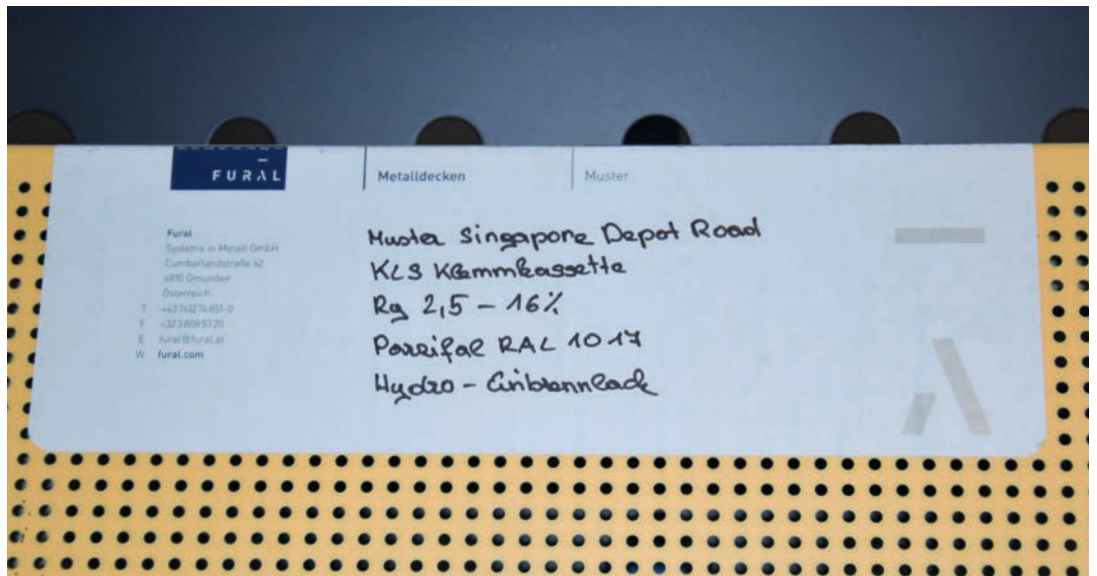 FURAL
Metalldecken
Muster
Fural
Systeme in Metall GmbH
Cumberlandstraße 62
4810 Gmunden
Österreich
T +43 7612 74 851-0
F
E fural@fural.at
W fural.com
Muster Singapore Depot Road
KLS Klemmkassette
Rg 2,5 – 16%
Parsifal RAL 1017
Hydro – Einbrennlack